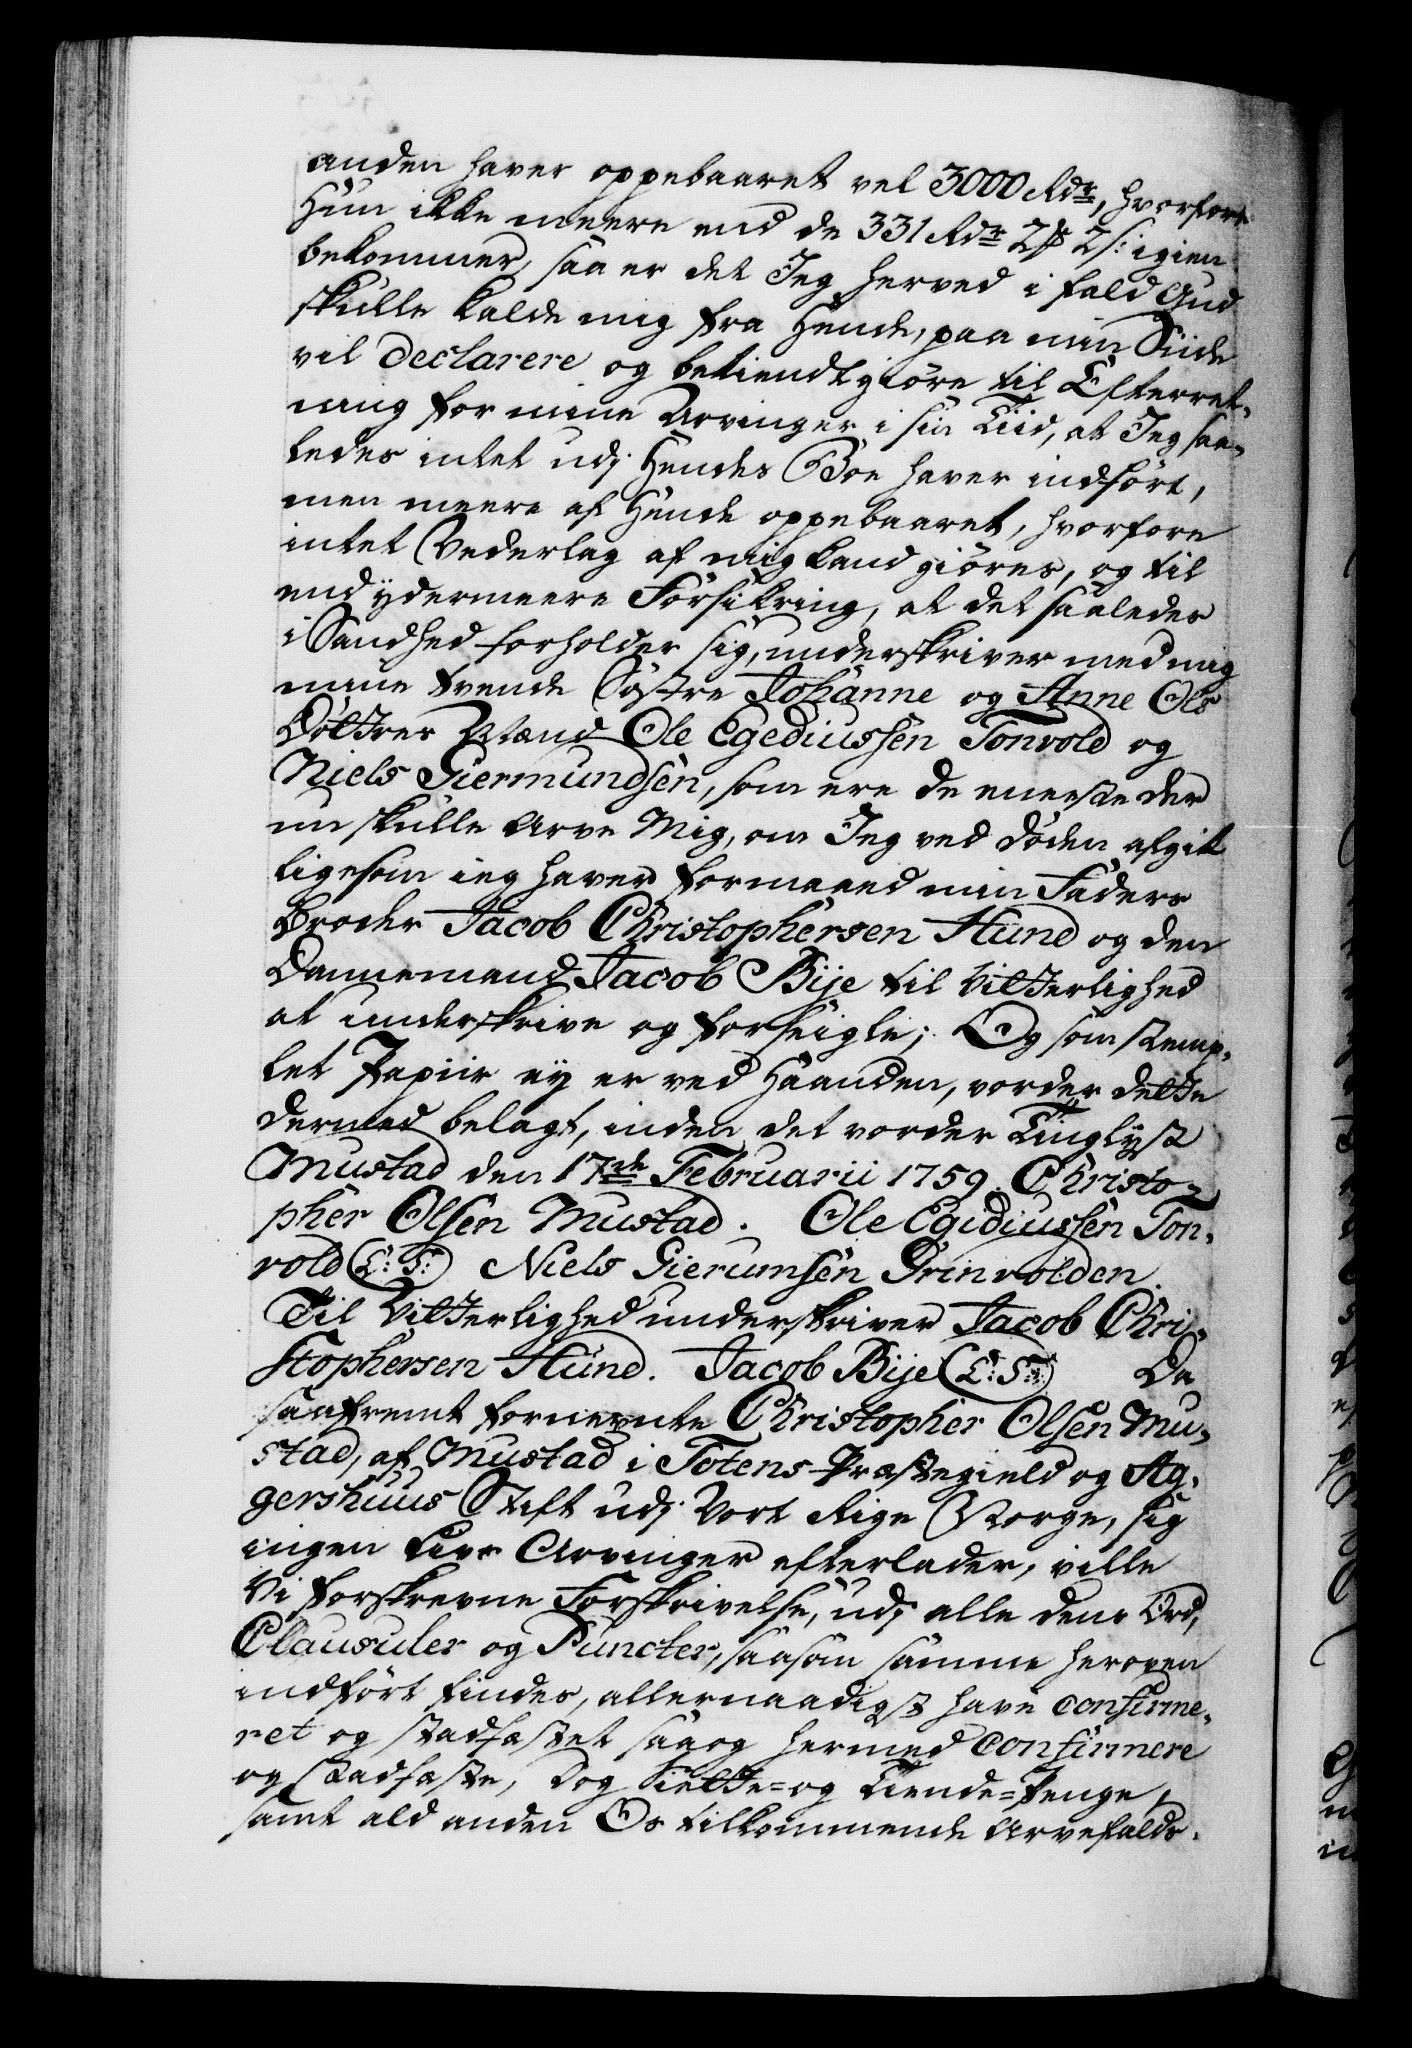 anden haver oppebaaret vel 3000 Rdr, hvorfore
Hun ikke meere end de 331 Rdr 2 2 s: igien
bekommer, saa er det Jeg herved i fald Gud
skulle kalde mig fra Hende, paa min Siide
vil declarere og bekiendtgiöre til Efterret-
ning for mine Arvinger i sin Tiid, at Jeg saa-
ledes intet udj Hendes Boe haver indfört,
men meere af Hende oppebaaret, hvorfore
intet Vederlag af mig kand giöres, og til
end ydermeere Forsikring, at det saaledes
i Sandhed forholder sig, underskriver med mig
mine tvende Söstre Johanne og Anne Ols
Döttres Mænd Ole Egediussen Tonvold og
Niels Giermundsen, som ere de eneeste der
nu skulle Arve Mig, om Jeg ved Döden afgik
ligesom jeg haver formaaed min Faders
Broder Jacob Christophersen Hund og den
Dannemand Jacob Bije til Vitterlighed
at underskrive og forseigle; Og som stemp-
let Papiir ey er ved Haanden, vorder dette
dermed belagt, inden det vorder Tinglyst
Mustad den 17de Februarii 1759. Christo-
pher Olsen Mustad. Ole Egidiussen Ton-
vold (L: S:) Niels Gierumsen Grinvolden.
Til Vitterlighed underskriver Jacob Chri-
stophersen Hund. Jacob Bije (L: S:) Da
saafremt fornevnte Christopher Olsen Mu-
stad, af Mustad i Totens Præstegield og Ag-
gershuus Stift udj Vort Rige Norge, sig
ingen Livs Arvinger efterlader, ville
Vi forskrevne Forskrivelse, udj alle dens Ord,
Clausuler og Puncter, saasom samme heroven
indfört findes, allernaadigst have confirme-
ret og stadfæstet saa og hermed confirmere
og stadfæste, Dog Siette- og Tiende-Penge,
samt ald anden Os tilkommende Arvefalds-